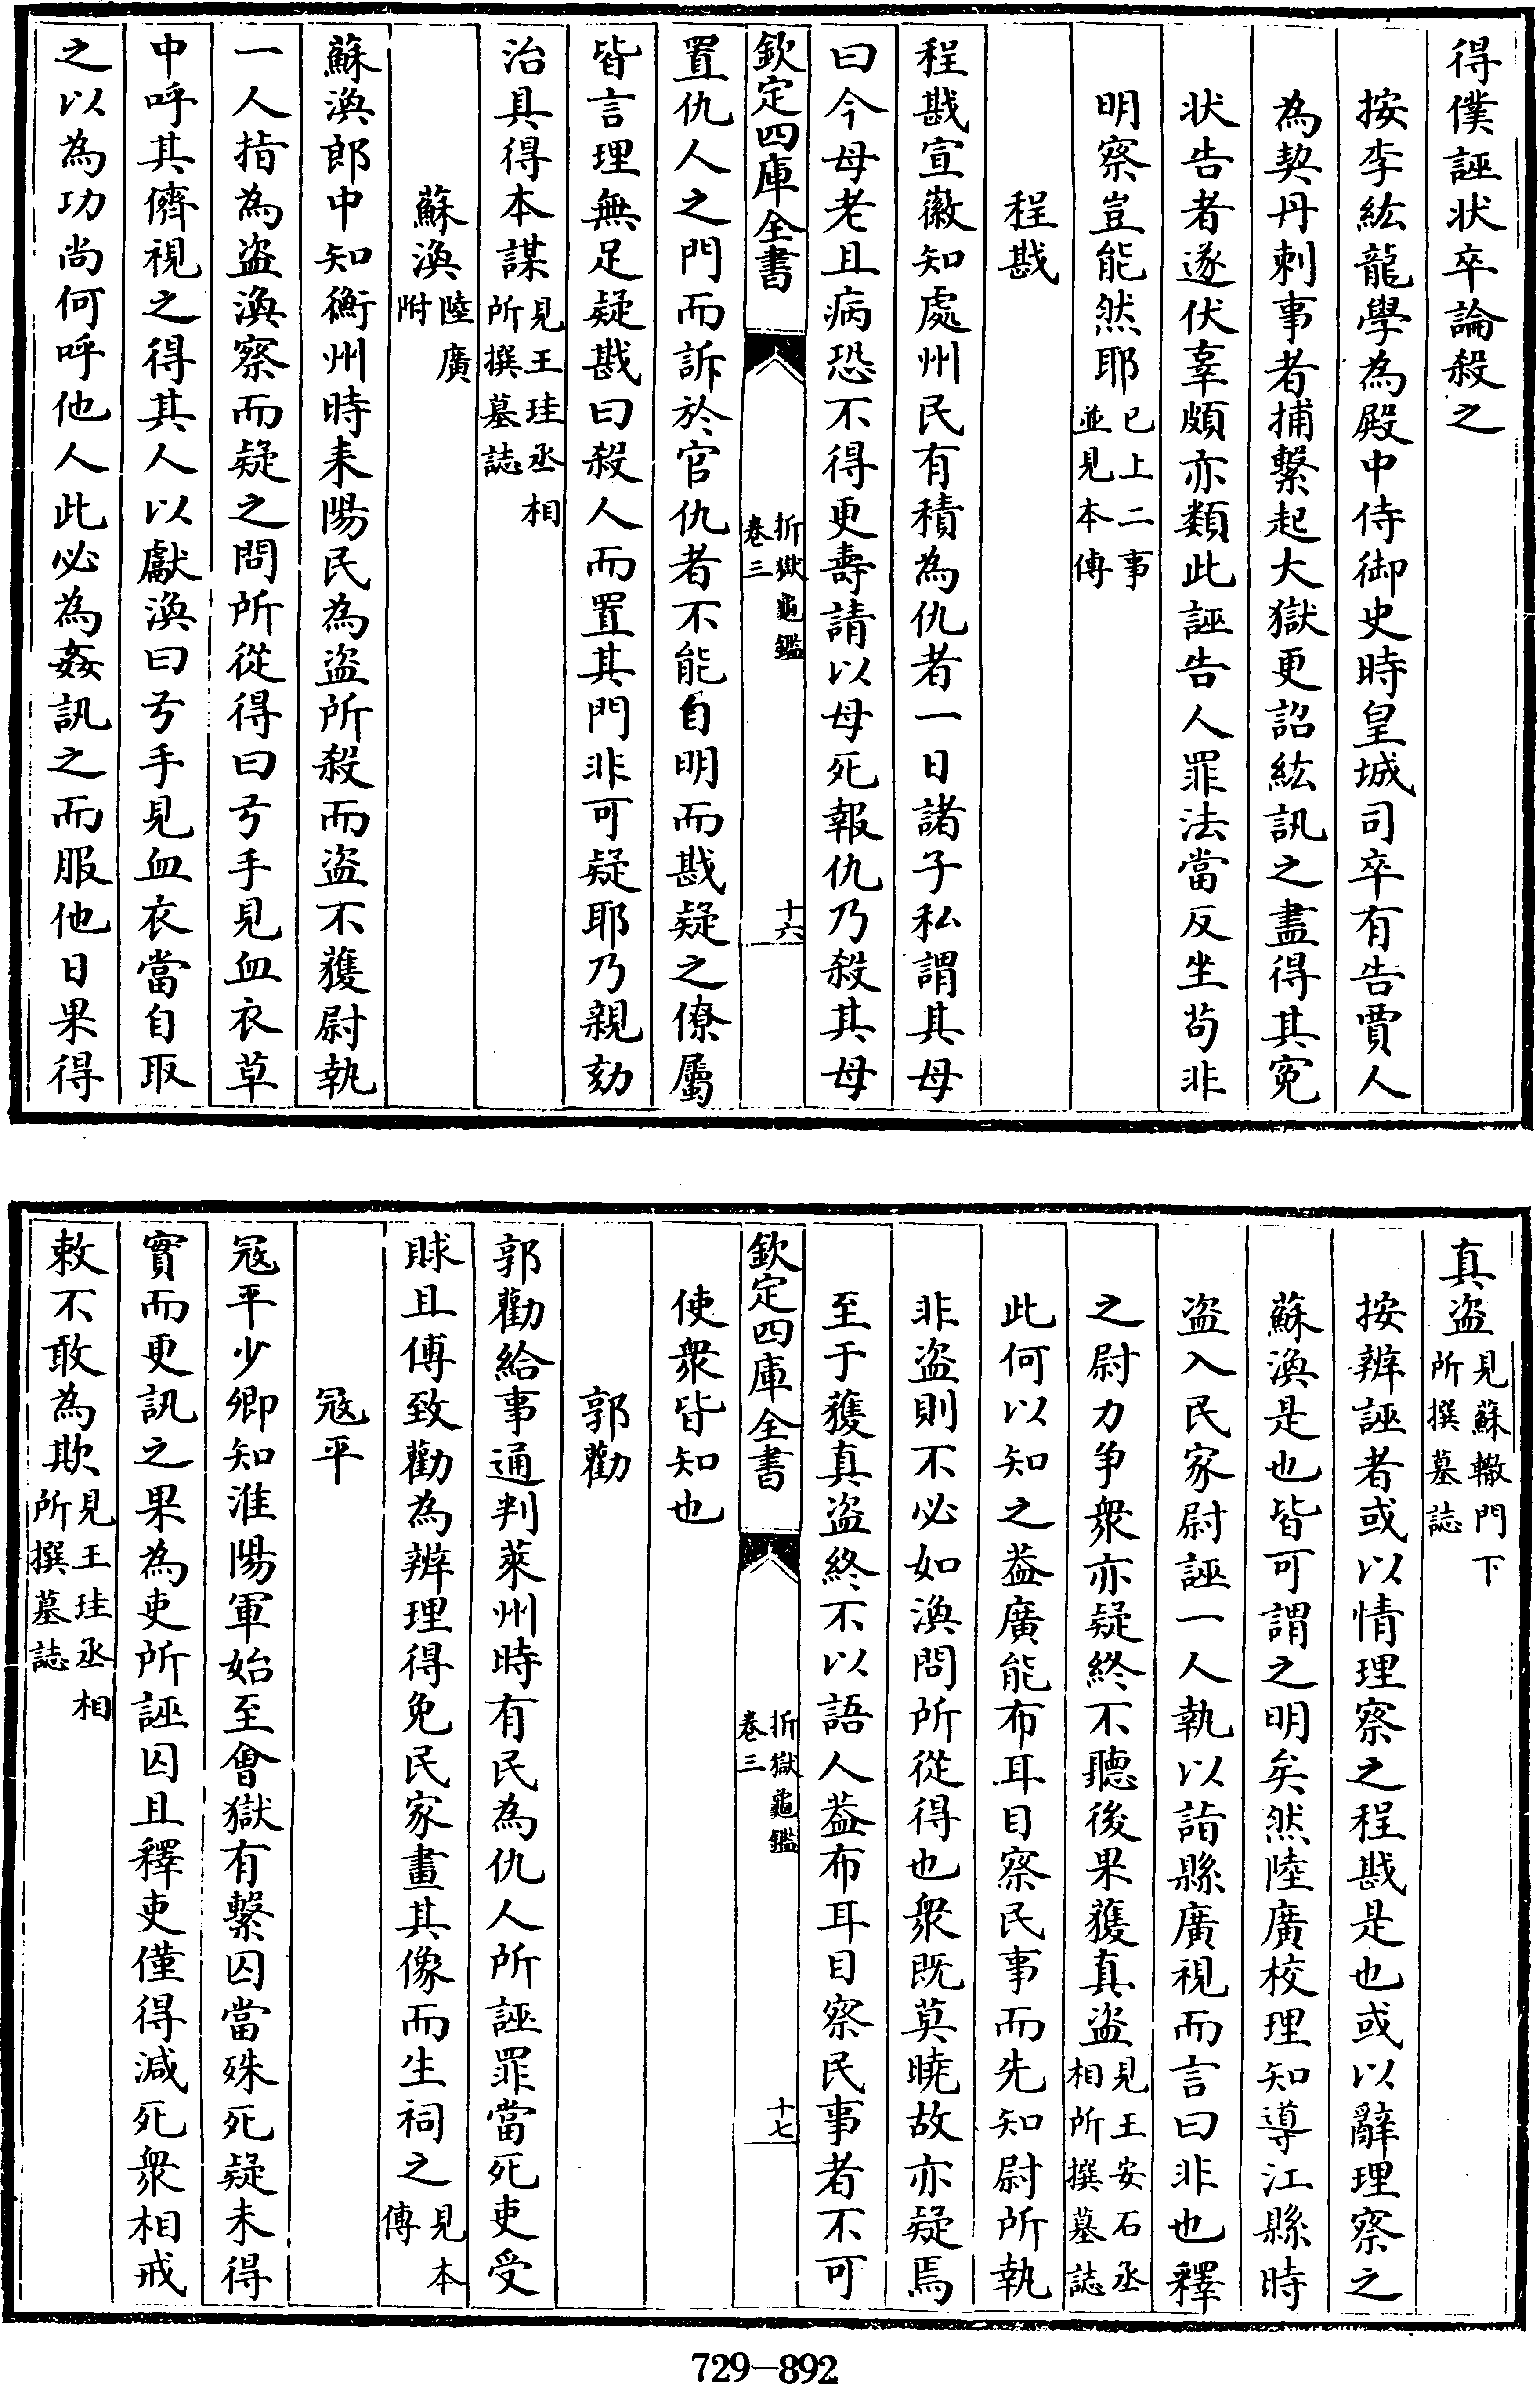 得僕誣状卒論殺之
按李紘龍學為殿中侍御史時皇城司卒有告賈人
為契丹刺事者捕繫起大獄更詔紘訊之盡得其寃
状告者遂伏辜頗亦類此誣告人罪法當反坐茍非
明察豈能然耶已上二事並見本傳
程戡
程戡宣徽知處州民有積為仇者一日諸子私謂其母
曰今母老且病恐不得更壽請以母死報仇乃殺其母
欽定四庫全書 折獄龜鑑卷三 十六
置仇人之門而訴於官仇者不能自明而戡疑之僚屬
皆言理無足疑戡曰殺人而置其門非可疑耶乃親劾
治具得本謀見王珪丞相所撰墓誌
蘇渙陸廣附
蘇渙郎中知衡州時耒陽民為盗所殺而盗不獲尉執
一人指為盗渙察而疑之問所從得曰弓手見血衣草
中呼其儕視之得其人以獻渙曰弓手見血衣當自取
之以為功尚何呼他人此必為姦訊之而服他日果得
真盗見蘇轍門下所撰墓誌
按辨誣者或以情理察之程戡是也或以辭理察之
蘇渙是也皆可謂之明矣然陸廣校理知導江縣時
盗入民家尉誣一人執以詣縣廣視而言曰非也釋
之尉力争衆亦疑終不聽後果獲真盗見王安石丞相所撰墓誌
此何以知之葢廣能布耳目察民事而先知尉所執
非盗則不必如渙問所從得也衆既莫曉故亦疑焉
至于獲真盗終不以語人葢布耳目察民事者不可
欽定四庫全書 折獄龜鑑卷三 十七
使衆皆知也
郭勸
郭勸給事通判萊州時有民為仇人所誣罪當死吏受
賕且傅致勸為辨理得免民家畫其像而生祠之見本傳
冦平
冦平少卿知淮陽軍始至會獄有繫囚當殊死疑未得
實而更訊之果為吏所誣囚且釋吏僅得減死衆相戒
敕不敢為欺見王珪丞相所撰墓誌
729-892